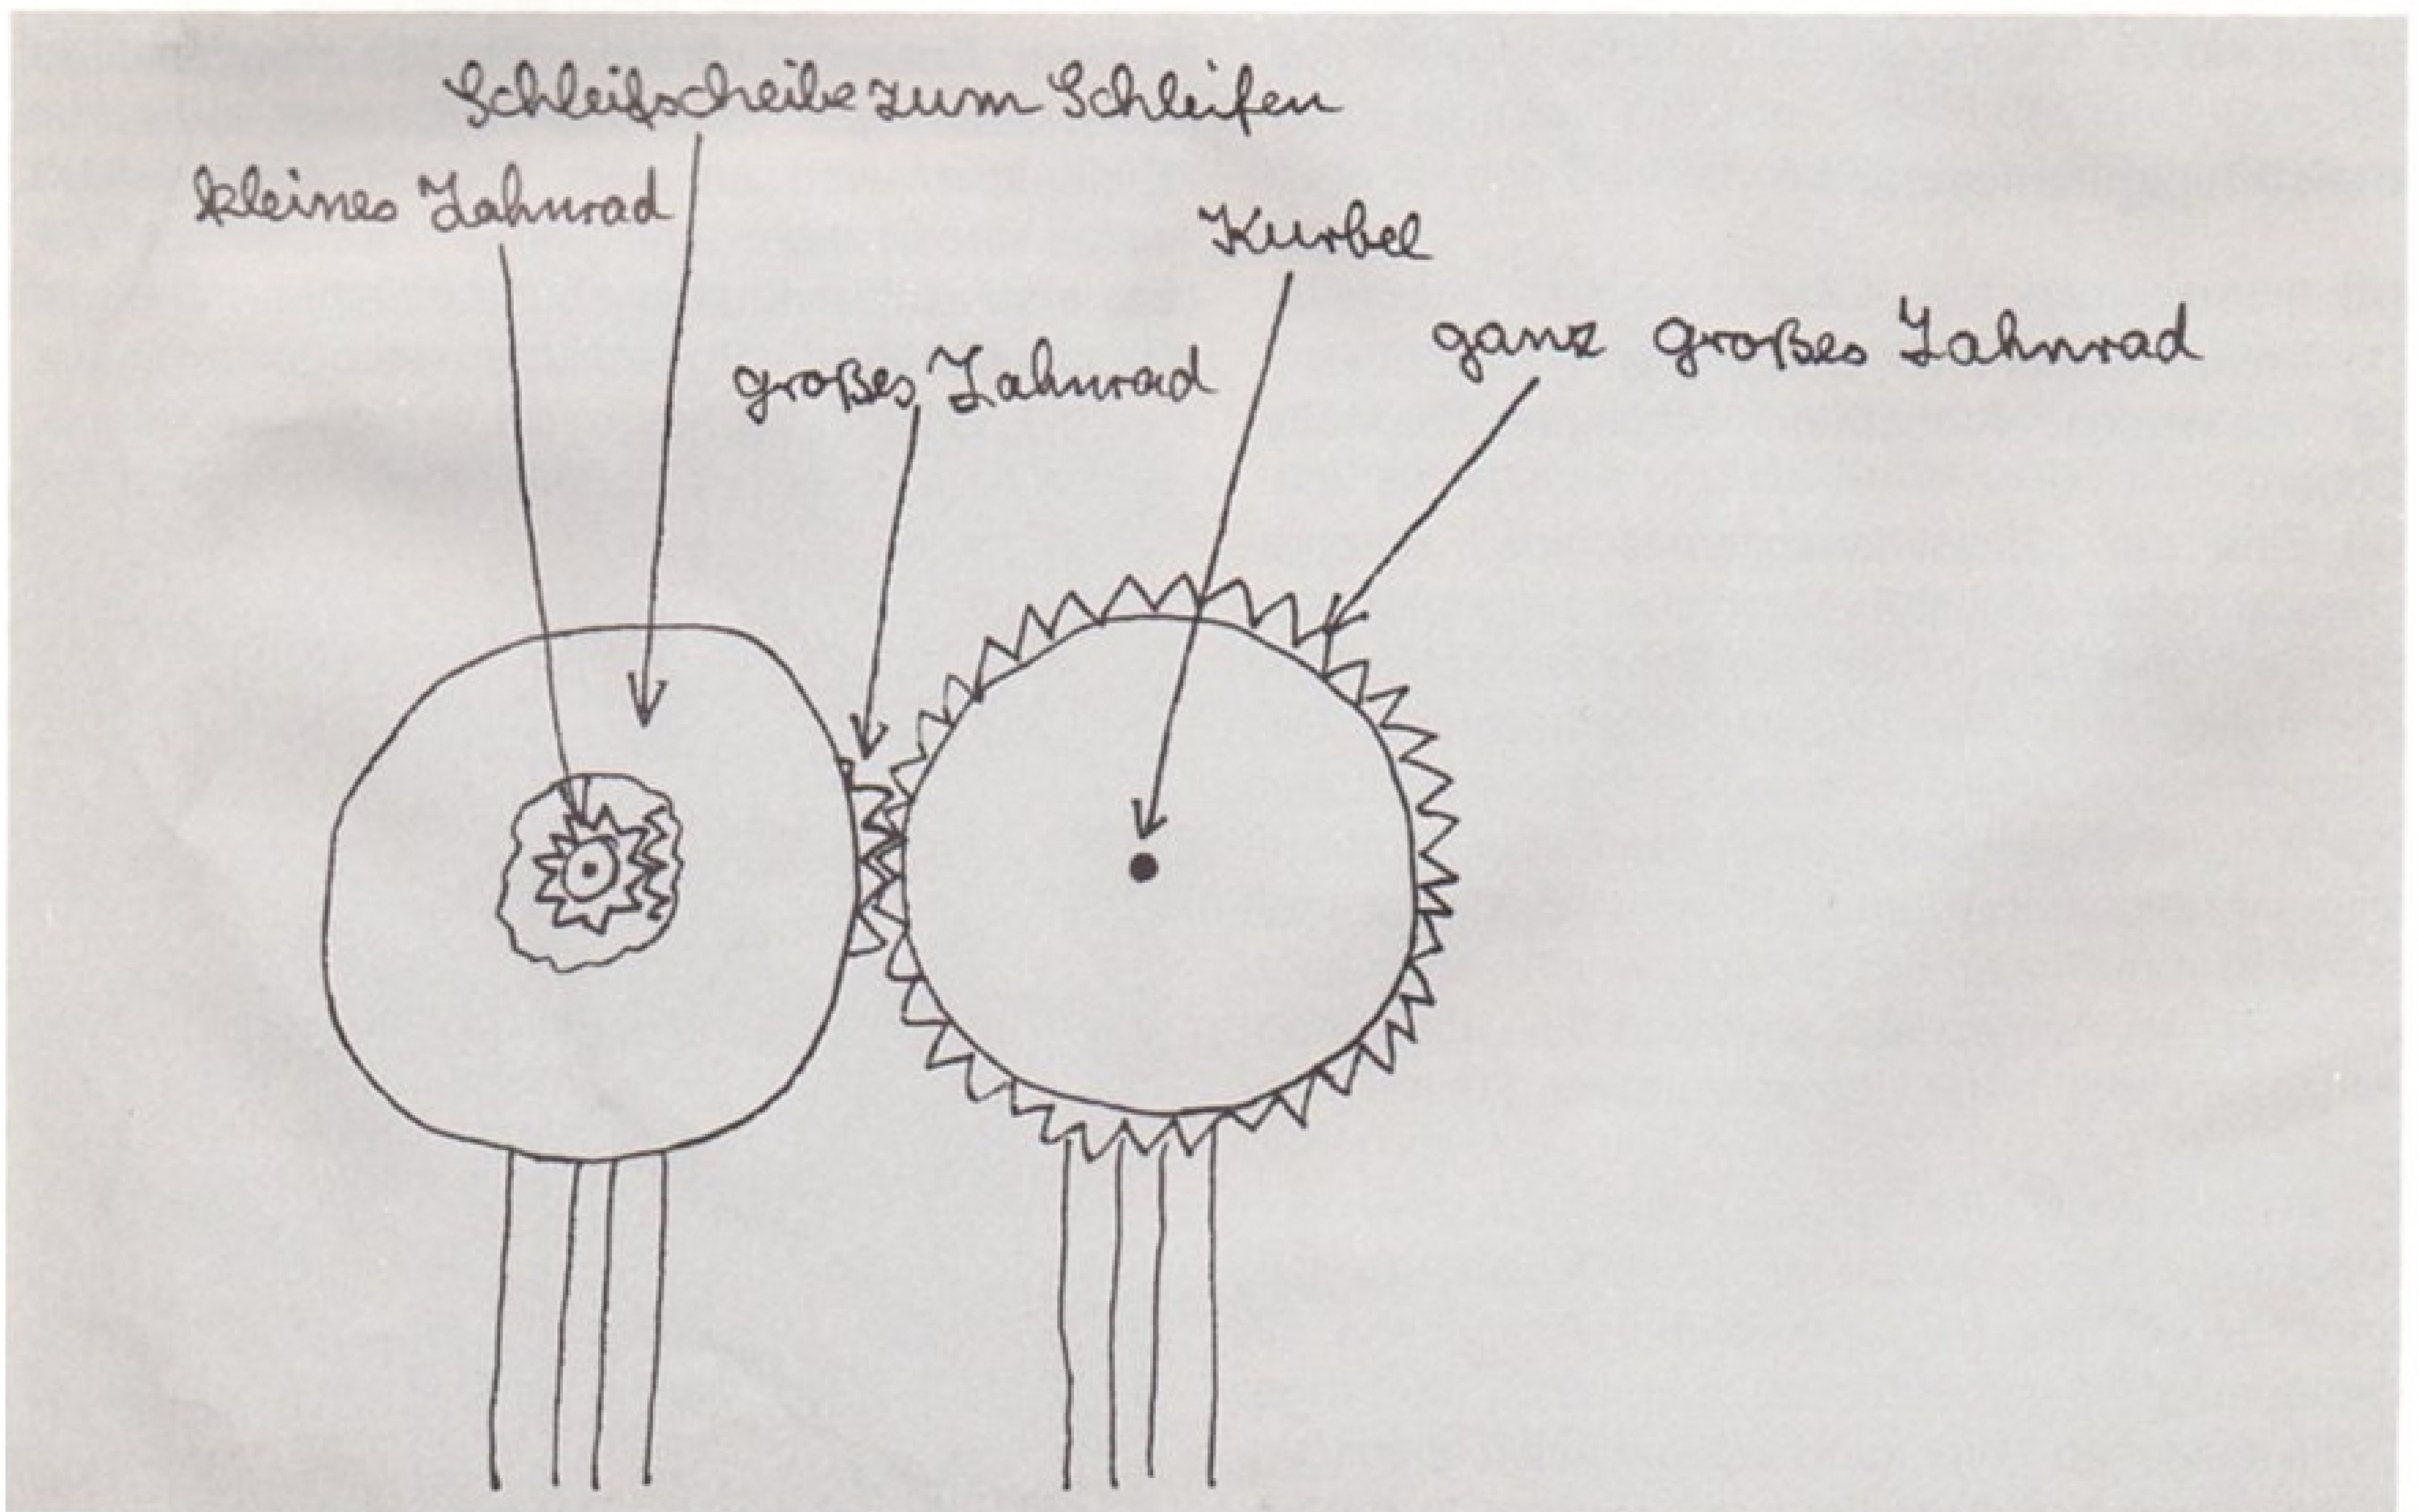 Schleifscheibe zum Schleifen
kleines Zahnrad
Kurbel
ganz großes Zahnrad
großes Zahnrad